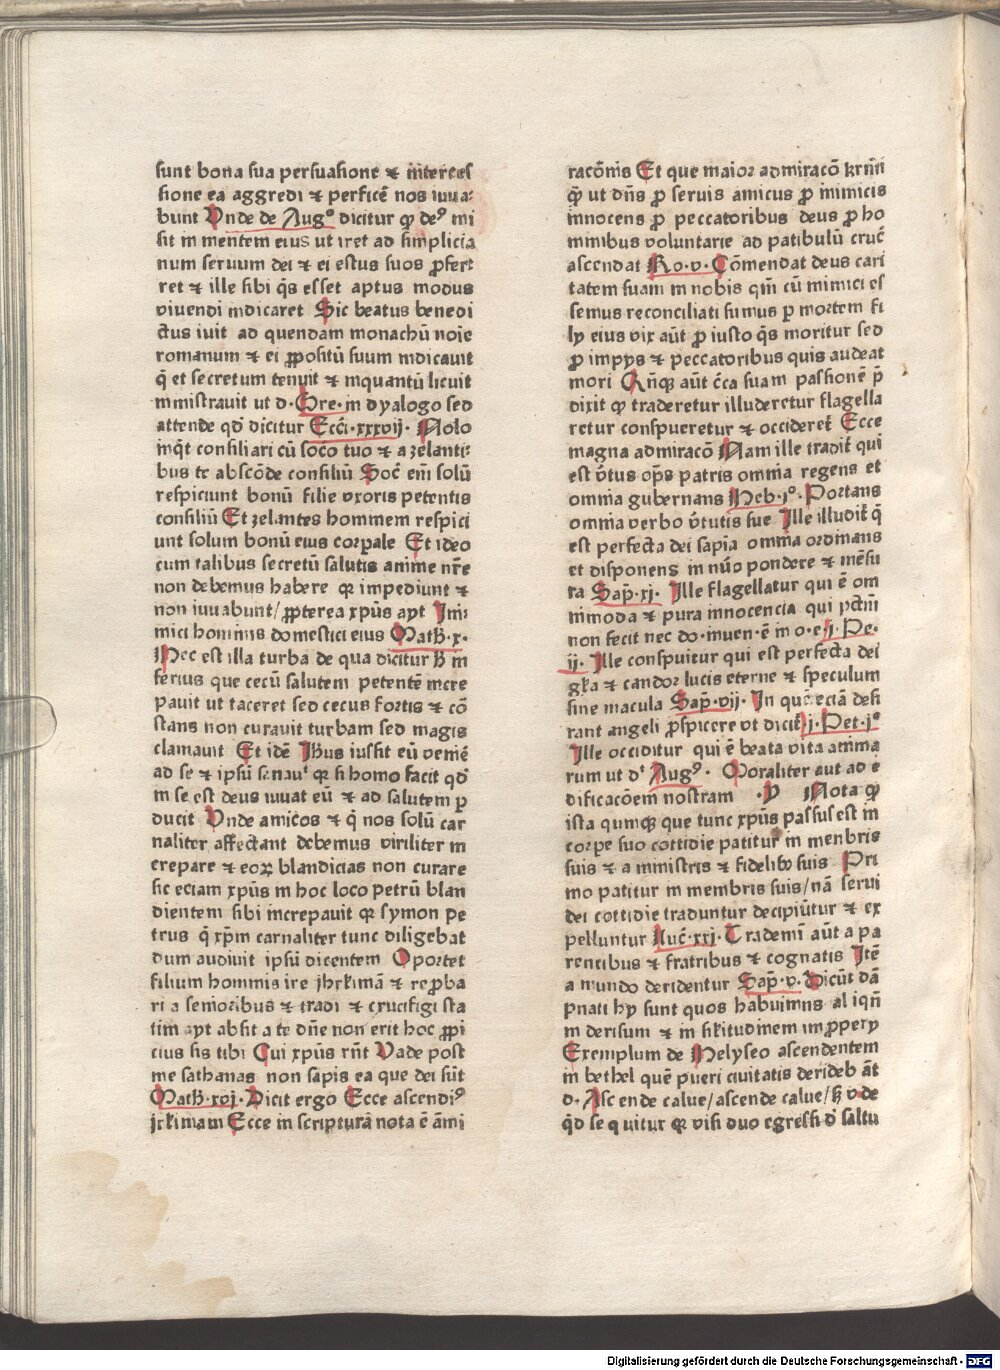 sunt bona sua persuasione ⁊ interces
sione ea aggredi ⁊ perficẽ nos iuua:
bunt Vnde de Augº dicitur ꝙ deꝰ mi
sit in mentem eius ut iret ad simplicia
num seruum dei ⁊ ei estus suos ꝓfert
ret ⁊ ille sibi q̃s esset aptus modus
viuendi indicaret Sic beatus benedi
ctus iuit ad quendam monachũ noĩe
romanum ⁊ ei ꝓpositũ suum indicauit
q̃ et secretum tenuit ⁊ inquantũ licuit
ministrauit ut d· Gre· in dyalogo sed
attende qď dicitur Ecĉi·xxxvij· Nolo
inq̃t consiliari cũ soc̃o tuo ⁊ a zelanti:
bus te abscõde consiliũ Soc̃ eñi solũ
respiciunt bonũ filie vxoris petentis
consiliũ Et zelantes hommem respici
unt solum bonũ eius corꝑale Et ideo
cum talibus secretũ salutis anime nr̃e
non debemus habere qꝛ impediunt ⁊
non iuuabunt/ ꝓpterea xp̃us ayt Ini
mici hominis domestici eius Math·x·
Hec est illa turba de qua dicitur ħ in
ferius que cecũ salutem petentẽ incre
pauit ut taceret sed cecus fortis ⁊ cõ
stans non curauit turbam sed magis
clamauit Et idẽ Ihus iussit eũ venire
ad se ⁊ ipsũ sanauᵗ qꝛ si homo facit qď
in se est deus iuuat eũ ⁊ ad salutem ꝑ
ducit Vnde amic̃os ⁊ q̃ nos solũ car
naliter affectant debemus viriliter in
crepare ⁊ eoꝝ blandicias non curare
sic eciam xp̃us in hoc loco petrũ blan
dientem sibi increpauit qꝛ symon pe
trus q̃ xp̃m carnaliter tunc diligebat
dum audiuit ipsũ dicentem Oportet
filium hominis ire ihrlimã ⁊ reꝓba
ri a senioribus ⁊ tradi ⁊ crucifigi sta
tim ayt absit a te dñe non erit hoc ꝓpi
cius sis tibi Cui xp̃us rñt Vade post
me sathanas non sapis ea que dei sũt
Math·xvj· Dicit ergo Ecce ascendiꝰ
jrlimam Ecce in scripturã nota ẽ am̃i
racõnis Et que maior admiracõ krñi
q̃ ut dñs ꝓ seruis amicus ꝓ inimicis
innocens ꝓ peccatoribus deus ꝓ ho
minibus voluntarie ad patibulũ crucꝭ
ascendat Ro·v· Cõmendat deus cari
tatem suam in nobis qm̃ cũ inimici es
semus reconciliati sumus ꝑ mortem fi
ly eius vix aũt ꝓ iusto q̃s moritur sed
ꝓ impys ⁊ peccatoribus quis audeat
mori Qñqꝫ aũt c̃ca suam passionẽ p̃
dixit ꝙ traderetur illuderetur flagella
retur conspueretur ⁊ occideret̃ Ecce
magna admiracõ Nam ille tradit̃ qui
est ṽtus op̃s patris omnia regens et
omnia gubernans Heb·jº· Portans
omnia verbo ṽtutis sue Ille illudit̃ q̃
est perfecta dei sapĩa omnia ordinans
et disponens in nũo pondere ⁊ mẽsu
ra Sap̃·xj· Ille flagellatur qui ẽ om
nimoda ⁊ pura innocencia qui pctm̃
non fecit nec do·inuen·ẽ in o·e·j·Pe·
ij· Ille conspuitur qui est perfecta dei
gl̃a ⁊ candor lucis eterne ⁊ speculum
sine macula Sap̃·vij· In quẽ eciã desi
rant angeli ꝓspicere vt dicit̃ j·Pet·jº
Ille occiditur qui ẽ beata vita anima
rum ut dᵗ Augꝰ· Moraliter aut ad e
dificacõem nostram ·V Nota ꝙ
ista quinqꝫ que tunc xp̃us passus est in
corpe suo cottidie patitur in menbris
suis ⁊ a ministris ⁊ fidelibꝰ suis Pri
mo patitur in membris suis/nã serui
dei cottidie traduntur decipiũtur ⁊ ex
pelluntur Luc̃·xxj· Trademĩ aũt a pa
rentibus ⁊ fratribus ⁊ cognatis Itẽ
a mundo deridentur Sap̃·v·Dicũt dã
pnati hy sunt quos habuimus aliqñ
in derisum ⁊ in similitudinem impropery
Exemplum de Helyseo ascendentem
in bethel quẽ pueri ciuitatis derideb ãt
d· Ascende calue/ascende calue/ħ v·de
q̃d sequitur qꝛ vrsi duo egressi ď saltu
Digitalisierung gefördert durch die Deutsche Forschungsgemeinschaft · DFG